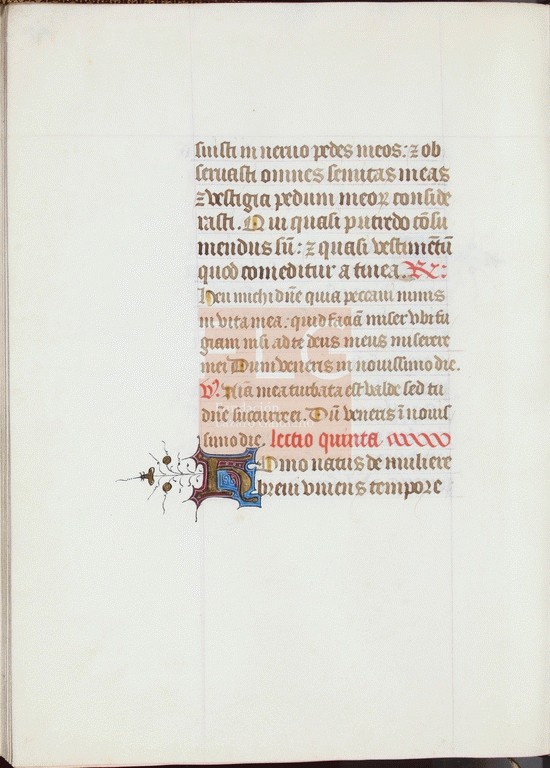 suisti in neruo pedes meos: ⁊ ob
seruasti omnes semitas meas
⁊ vestigia pedum meoꝝ conside
rasti. Qui quasi putredo cōsu
mendus sū: ⁊ quasi vestimētū
quod comeditur a tinea. R̃:
Heu michi dñe quia peccaui nimis
in vita mea: quid faciā miser vbi fu
giam nisi ad te deus meus miserere
mei Dum veneris in nouissimo die.
V. Aīa mea turbata est valde sed tu
dñe succurre ei. Dū veneris ī nouis
simo die. lectio quinta
Homo natus de muliere
breui viuens tempore